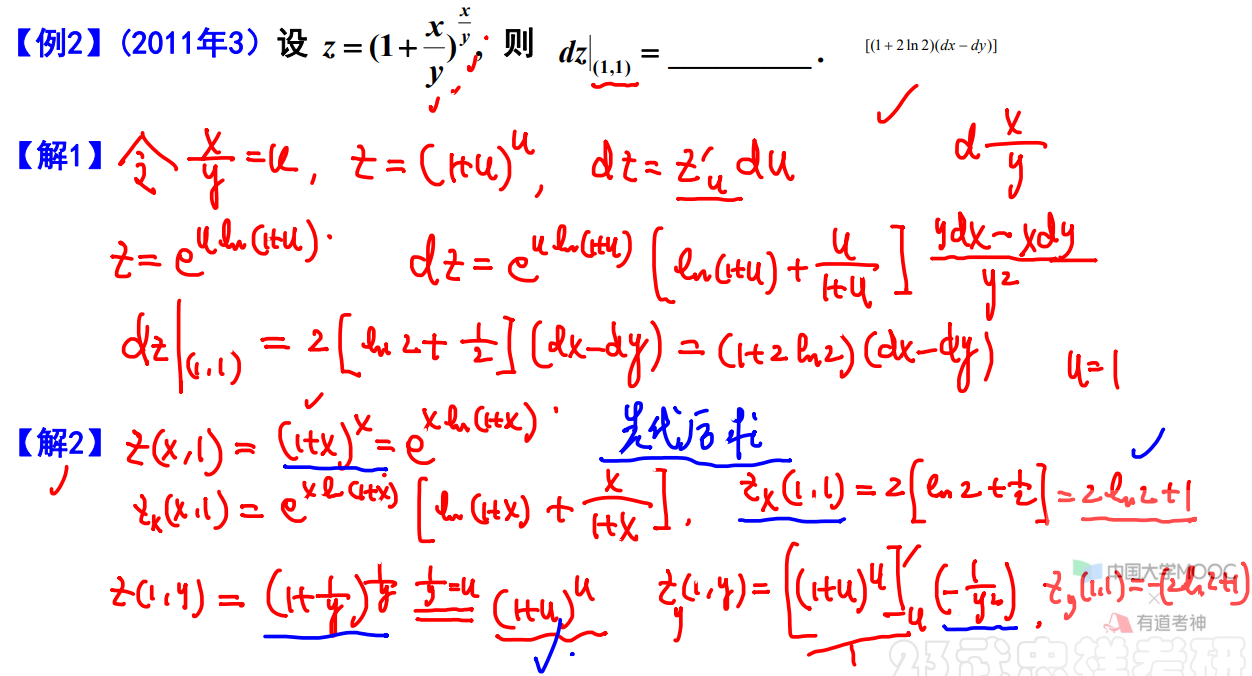 【例2】(2011年3) 设 z=(1+x/y)^{x/y}, 则 dz|_{(1,1)} = ________. [(1+2ln2)(dx−dy)]
【解1】令 x/y=u, z=(1+u)^u, dz=z'_u du d x/y
z=e^{u ln(1+u)}. dz=e^{u ln(1+u)}[ln(1+u)+u/(1+u)] (ydx−xdy)/y²
dz|_{(1,1)} = 2[ln2+1/2](dx−dy)=(1+2ln2)(dx−dy) u=1
【解2】z(x,1)=(1+x)^x=e^{x ln(1+x)}. 先代后求
z_x(x,1)=e^{x ln(1+x)}[ln(1+x)+x/(1+x)]. z_x(1,1)=2[ln2+1/2]=2ln2+1
z(1,y)=(1+1/y)^{1/y} 1/y=u (1+u)^u z_y(1,y)=[(1+u)^u]'_u(−1/y²). z_y(1,1)=−(2ln2+1)
中国大学MOOC
×
有道考神
23武忠祥考研